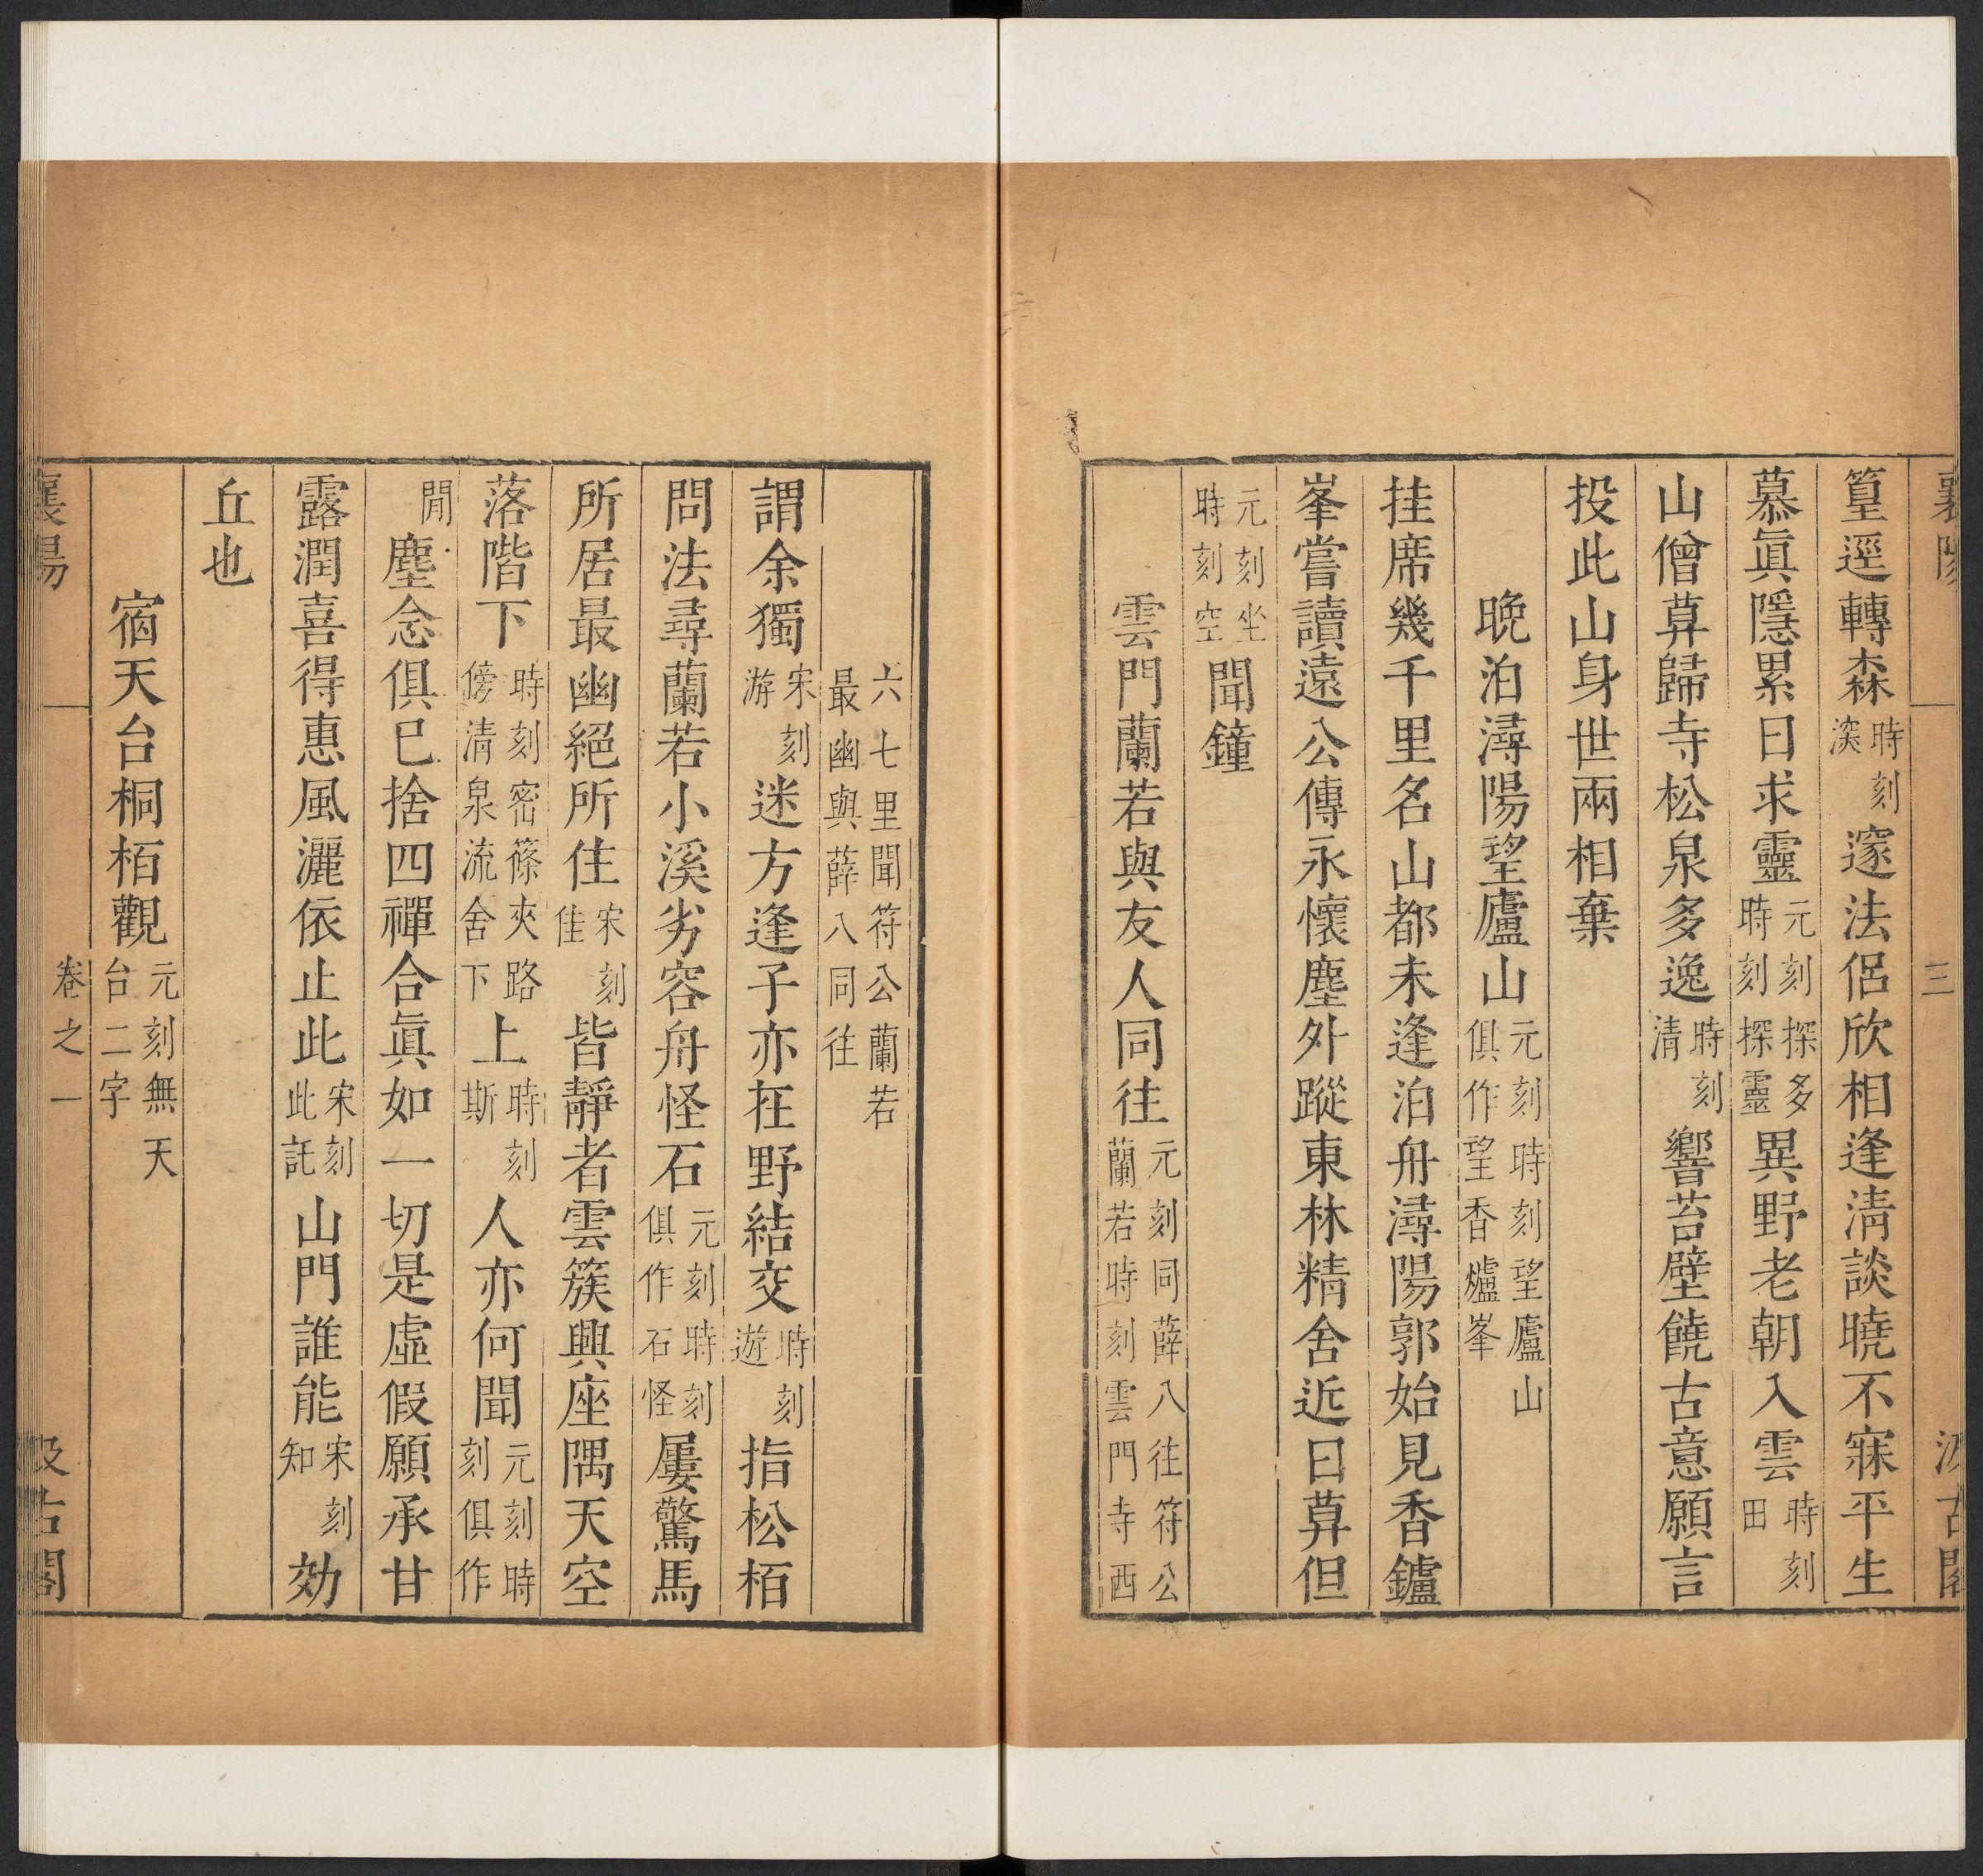 襄陽 三 汲古閣
篁逕轉森時刻湥邃法侶欣相逢清談曉不寐平生
慕眞隱累日求靈元刻探多時刻探靈異野老朝入雲時刻田
山僧暮歸寺松泉多逸時刻清響苔壁饒古意願言
投此山身世兩相棄
晚泊潯陽望廬山元刻時刻望廬山俱作望香爐峯
挂席幾千里名山都未逢泊舟潯陽郭始見香鑪
峯嘗讀遠公傳永懷塵外蹤東林精舍近日暮但
元刻坐時刻空聞鐘
雲門蘭若與友人同往元刻同薛八往符公蘭若時刻雲門寺西
六七里聞符公蘭若最幽與薛八同往
謂余獨宋刻游迷方逢子亦在野結交時刻遊指松栢
問法尋蘭若小溪劣容舟怪石元刻時刻俱作石怪屢驚馬
所居最幽絕所住宋刻佳皆靜者雲簇興座隅天空
落階下時刻密篠夾路傍清泉流舍下上時刻斯人亦何聞元刻時刻俱作
閒塵念俱已捨四禪合眞如一切是虛假願承甘
露潤喜得惠風灑依止此宋刻此託山門誰能宋刻知効
丘也
宿天台桐栢觀元刻無天台二字
襄陽 卷之一 汲古閣